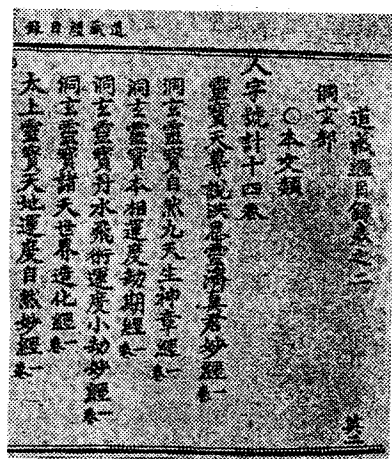 道藏經目錄
道藏經目錄卷之二
其二
洞玄部
○本文類
人字號計十四卷
靈寶天尊說洪恩靈濟真君妙經一卷
洞玄靈寶自然九天生神章經一卷
洞玄靈寶本相運度劫期經一卷
洞玄靈寶丹水飛術運度小劫妙經一卷
洞玄靈寶諸天世界造化經一卷
太上靈寶天地運度自然妙經一卷